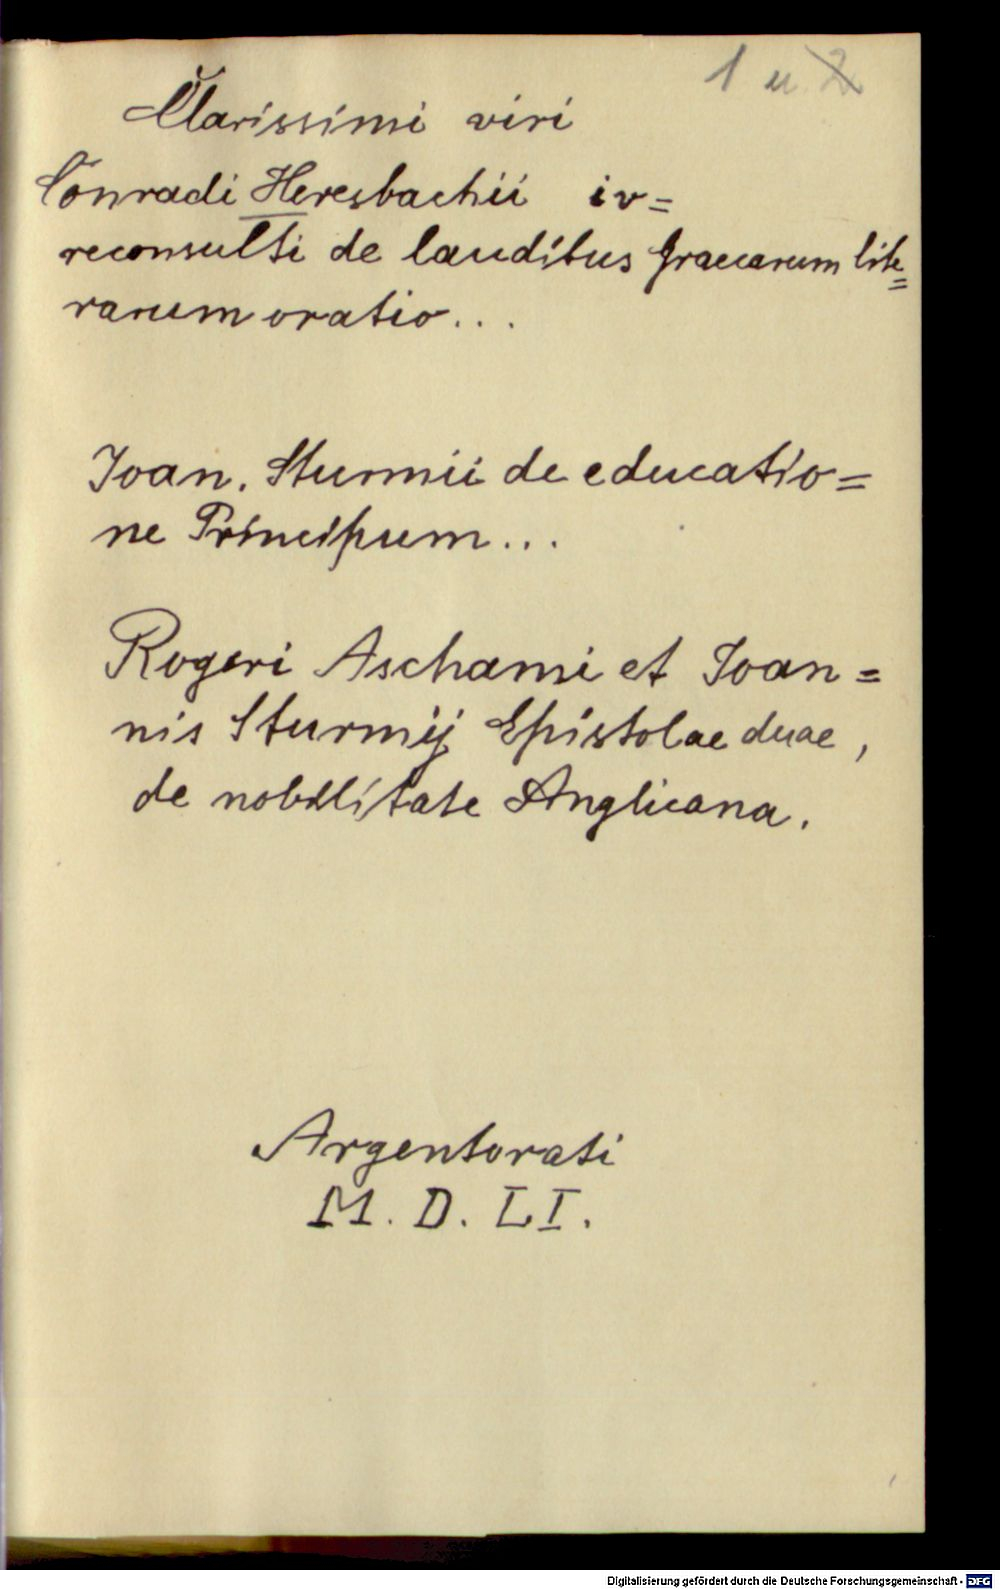 1 u. 2
Clarissimi viri
Conradi Heresbachii iv=
reconsulti de laudibus Graecarum lite=
rarum oratio...
Joan. Sturmii de educatio=
ne Principum...
Rogeri Aschami et Joan=
nis Sturmij Epistolae duae,
de nobilitate Anglicana.
Argentorati
M. D. LI.
Digitalisierung gefördert durch die Deutsche Forschungsgemeinschaft - DFG